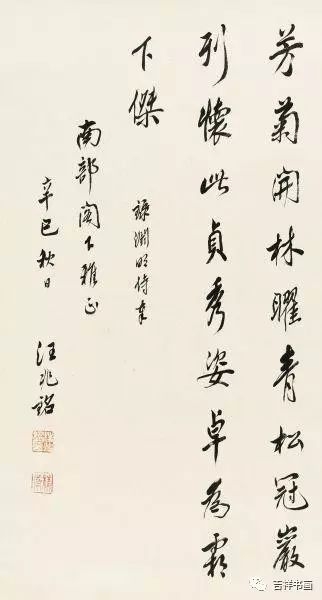 芳菊開林曜青松冠巖
列懷此貞秀姿卓為霜
下傑
錄淵明詩奉
南部閣下雅正
辛巳秋日 汪兆銘
吉祥书画